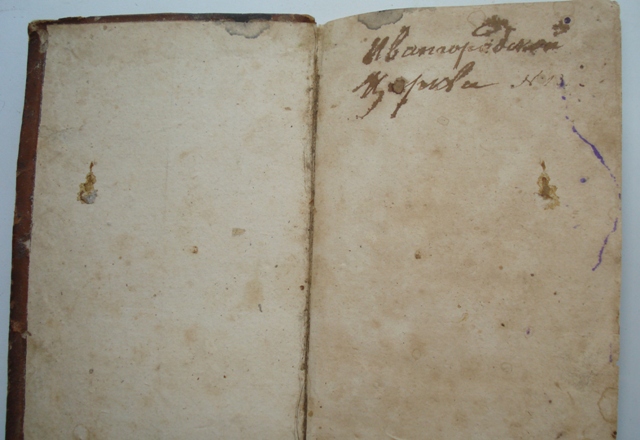 Ивангородской
Церкви